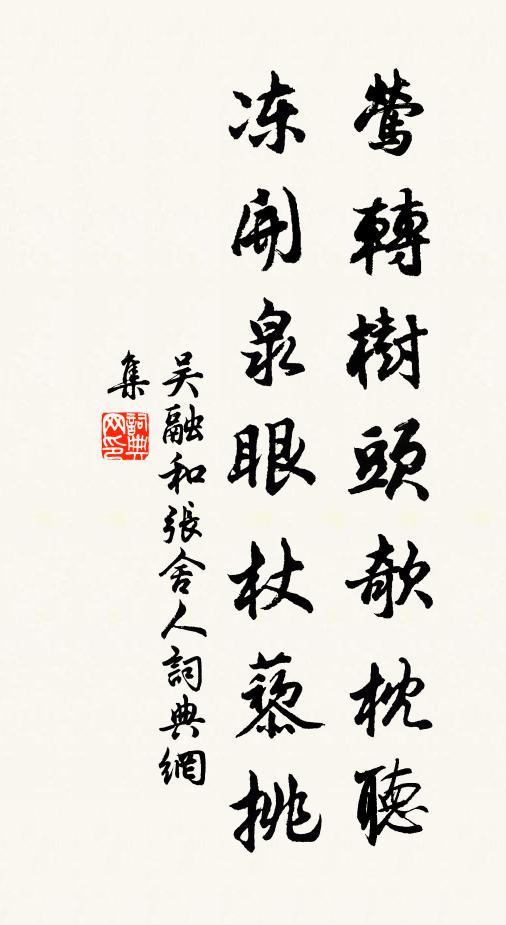 鶯轉樹頭欹枕聽
凍開泉眼杖藜挑
吳融和張舍人詞典網
集
詞典
網印